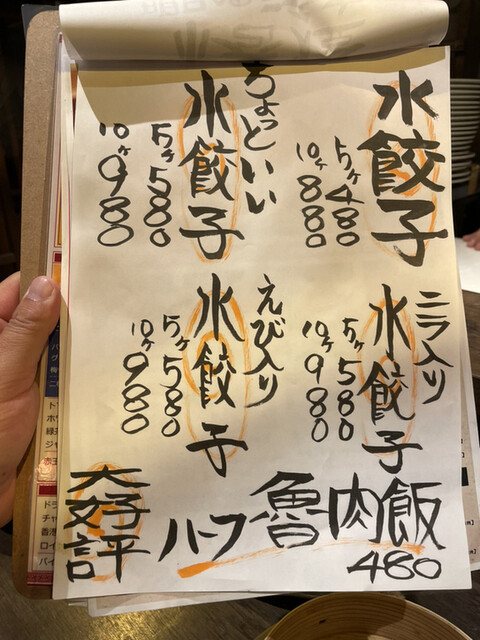 水餃子
5ヶ480
10ヶ880
ちょっといい
水餃子
5ヶ580
10ヶ980
ニラ入り
水餃子
5ヶ580
10ヶ980
えび入り
水餃子
5ヶ580
10ヶ980
魯肉飯
ハーフ
480
大好評